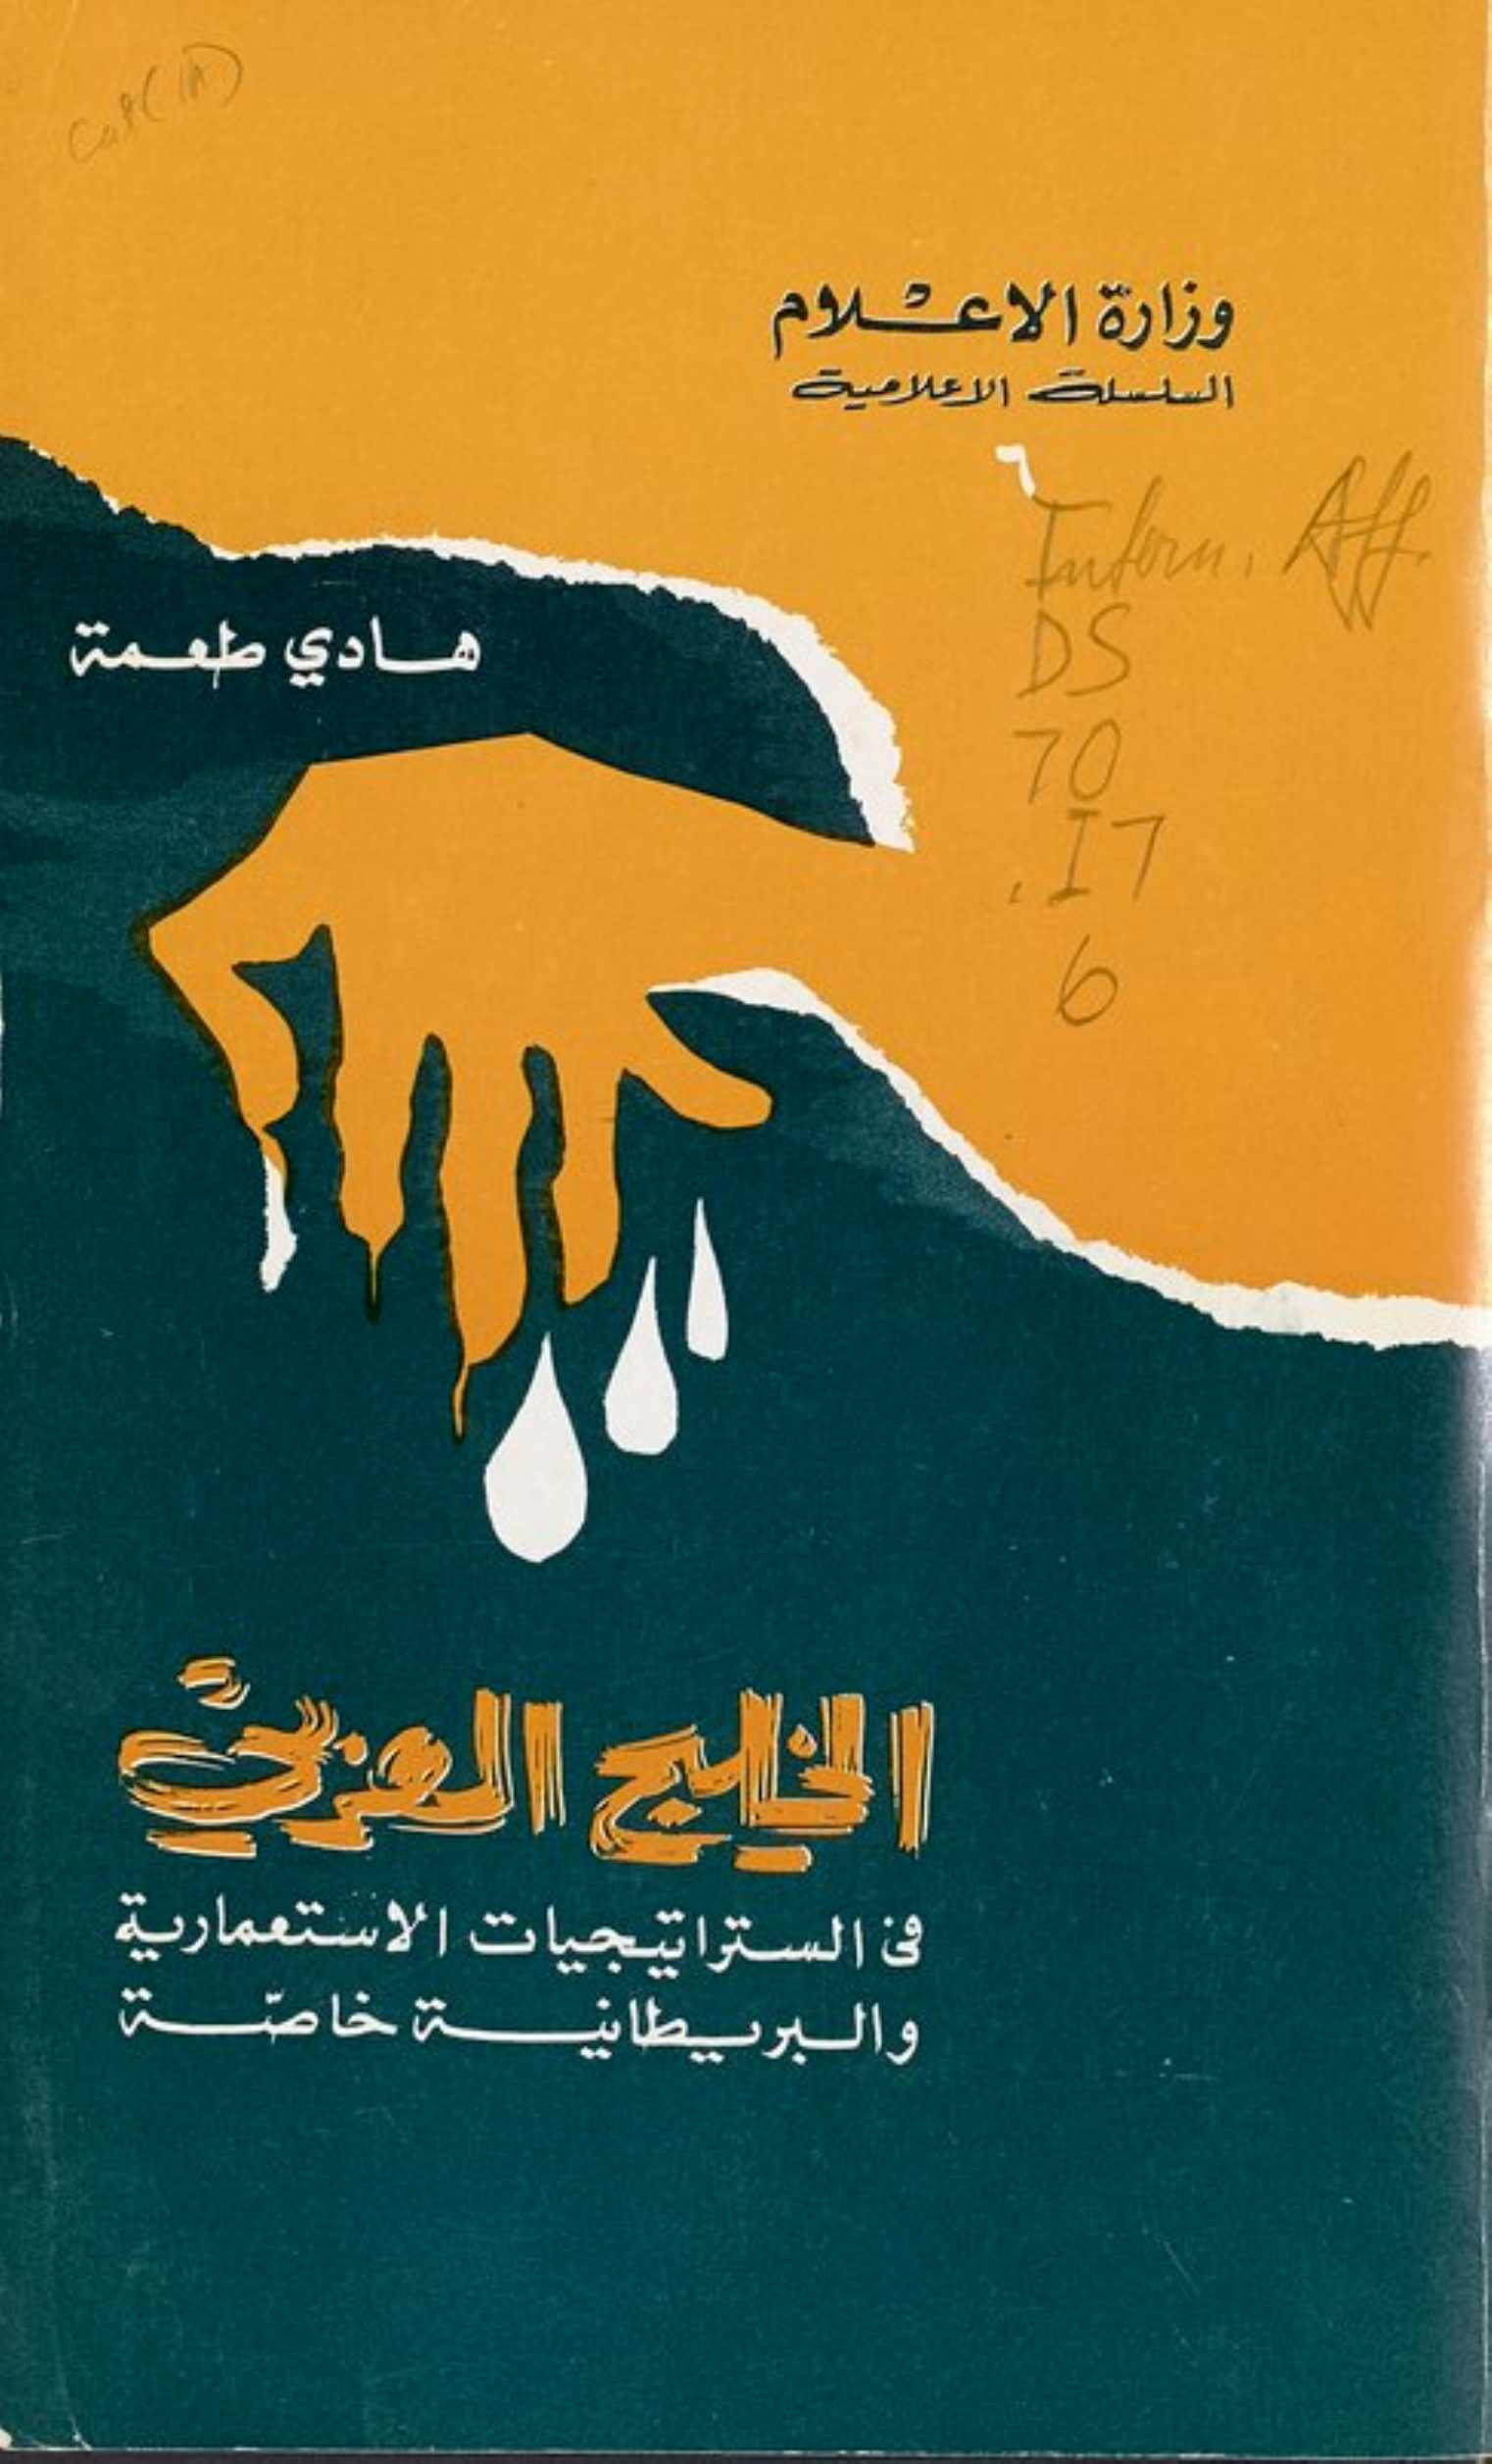 وزارة الاعلام
السلسلة الاعلامية
٦
Inform. Aff.
DS
70
.I7
6
هادي طعمة
الخليج العربي
في الستراتيجيات الاستعمارية
والبريطانية خاصّة